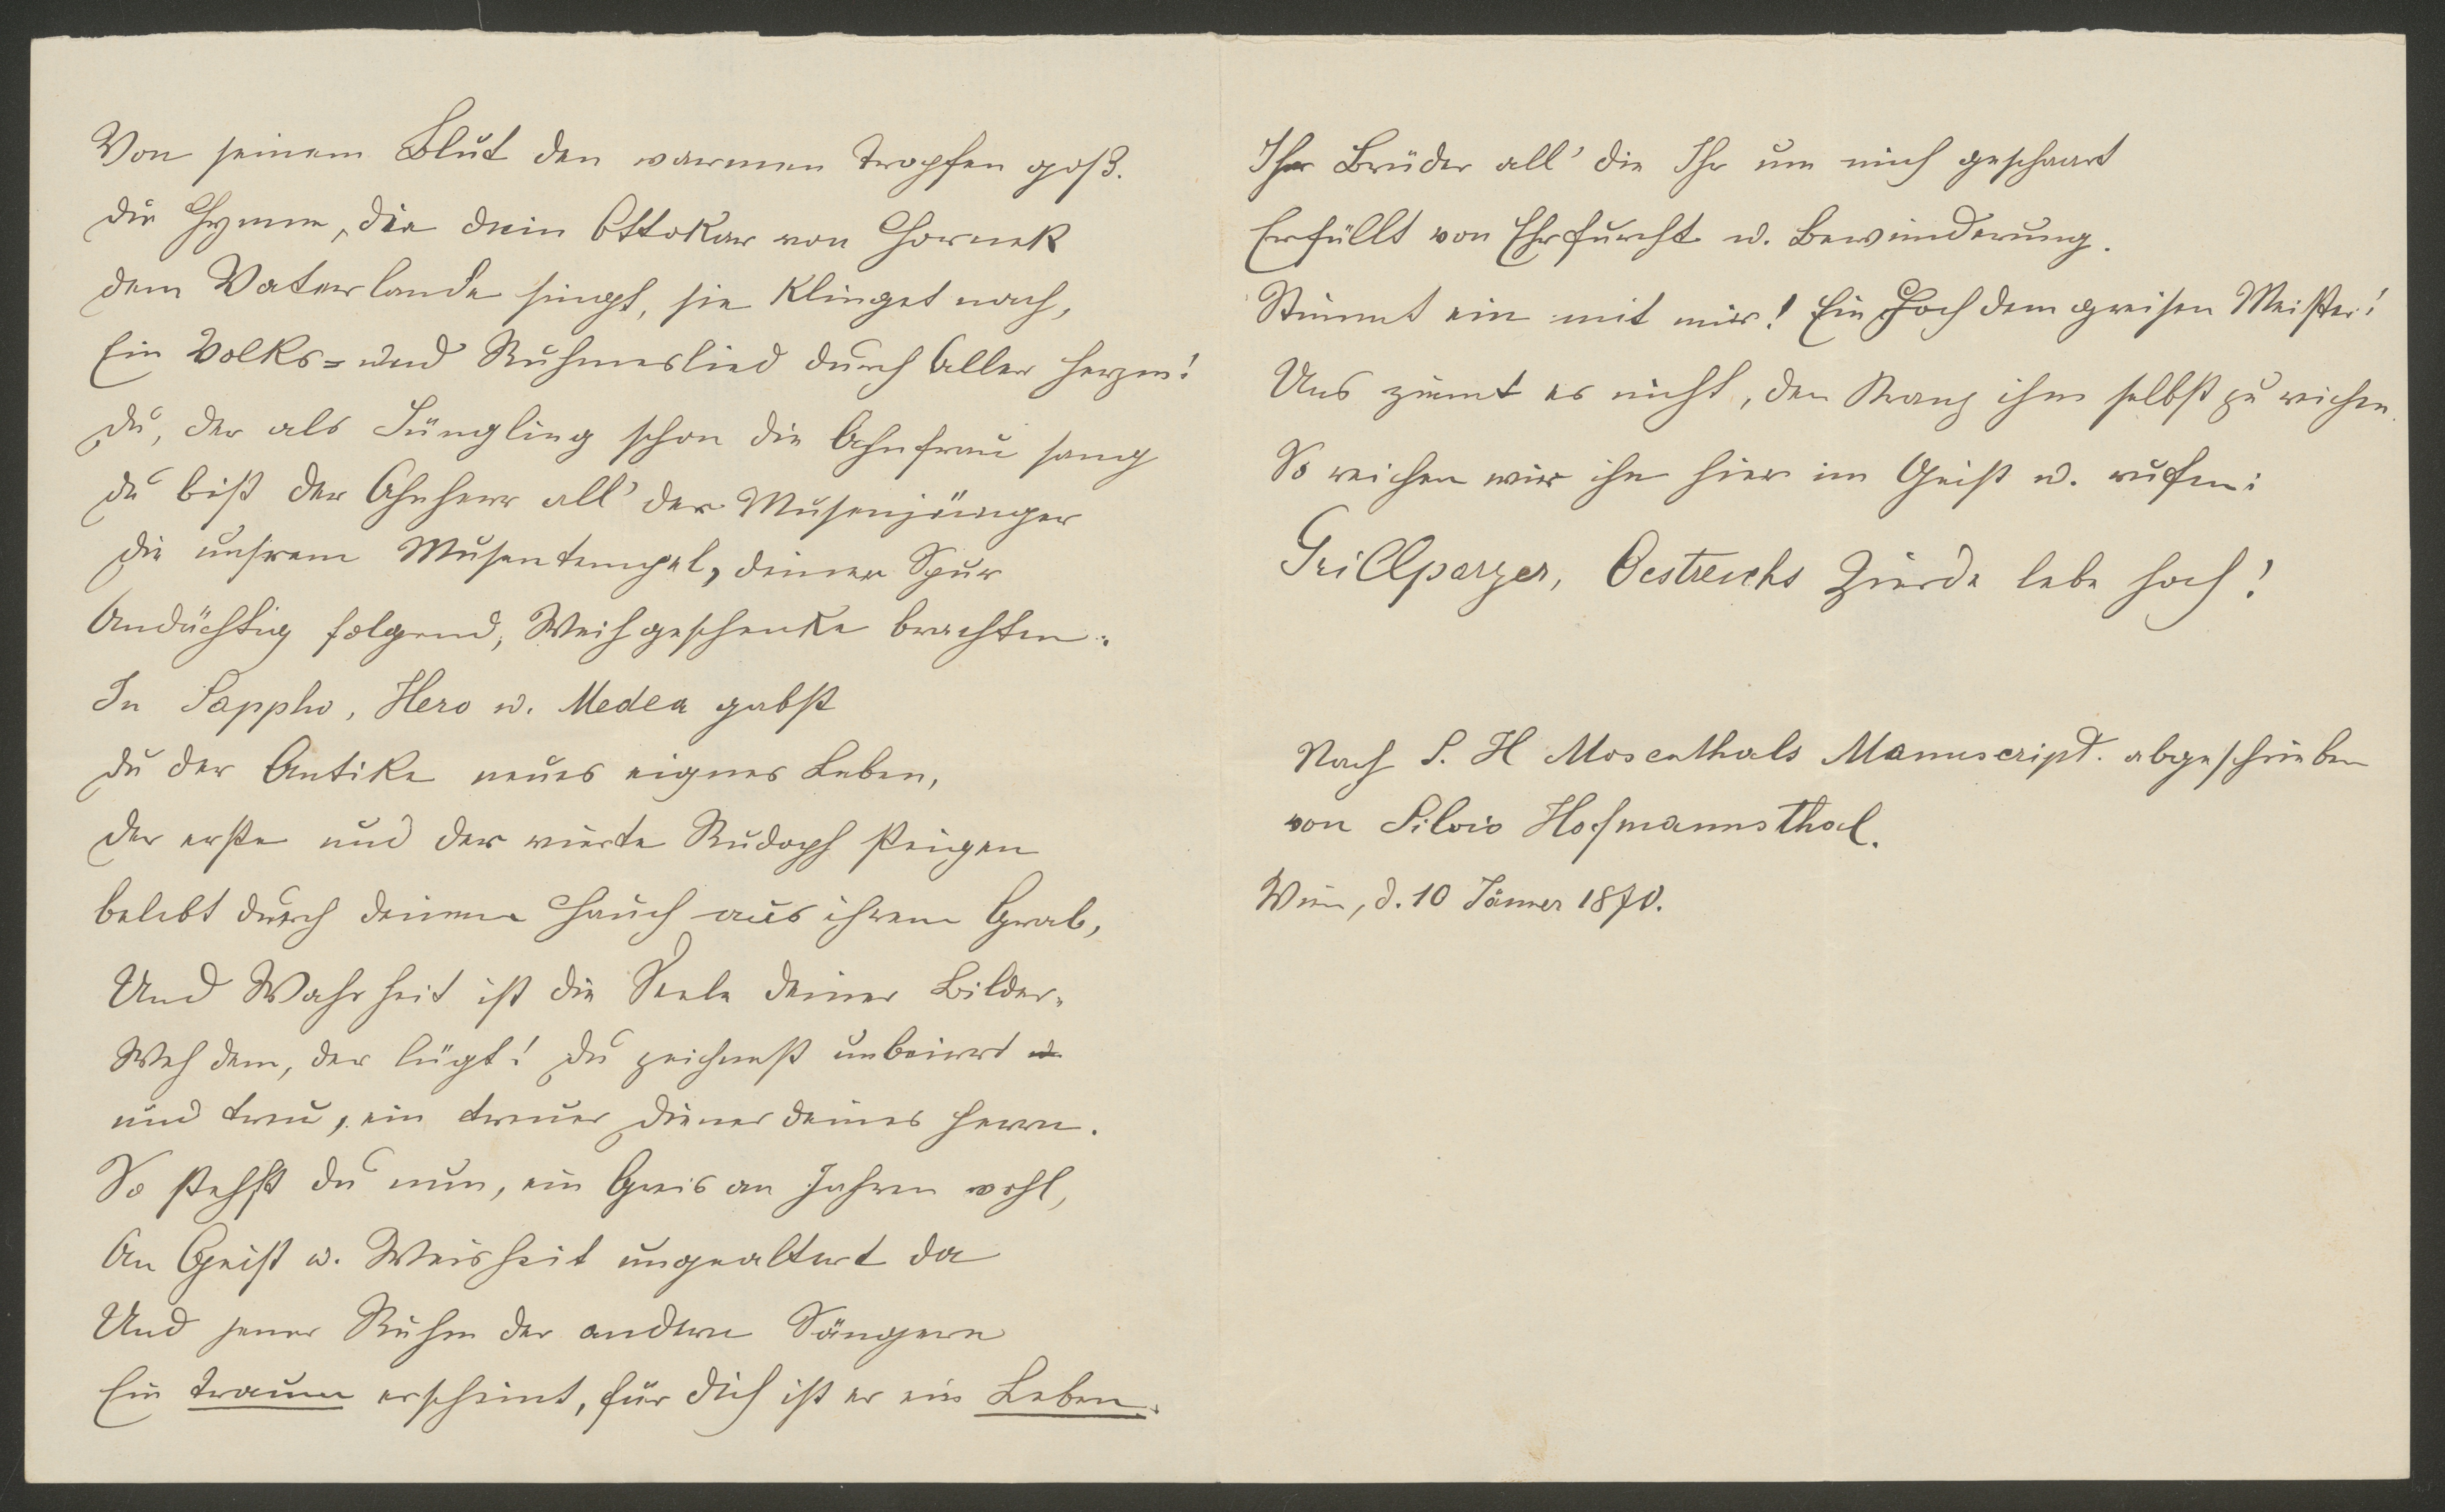 Von seinem Blut den warmen Tropfen goß.
Die Hymne, die dein Ottokar von Horneck
dem Vaterlande singt, sie klinget nach,
Ein Volks= und Ruhmeslied durch Aller Herzen!
Du, der als Jüngling schon die Ahnfrau sang
Du bist der Ahnherr all' der Musenjünger
Die unsrem Musentempel, deiner Spur
Andächtig folgend, Weihgeschenke brachten.
In Sappho, Hero u. Medea gabst
Du der Antike neues eignes Leben,
Der erste und der vierte Rudoph steigen
belebt durch deinen Hauch aus ihrem Grab,
Und Wahrheit ist die Seele deiner Bilder.
Weh dem, der lügt! Du zeichnest unbeirrt
und treu, ein treuer Diener deines Herrn.
So stehst du nun, ein Greis an Jahren wohl,
An Geist u. Weisheit ungealtert da
Und jener Ruhm der andern Sängern
Ein Traum erscheint, für dich ist er ein Leben.
Ihr Brüder all' die Ihr um mich geschaart
Erfüllt von Ehrfurcht u. Bewunderung.
Stimmt ein mit mir! Ein Hoch dem greisen Meister!
Uns ziemt es nicht, den Kranz ihm selbst zu reichen.
So reichen wir ihn hier im Geist u. rufen:
Grillparzer, Oestreichs Zierde lebe hoch!
Nach S. H Mosenthals Manuscript. abgeschrieben
von Silvio Hofmannsthal.
Wien, d. 10 Jänner 1870.